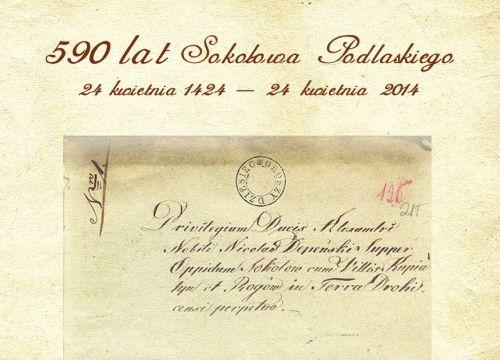 590 lat Sokołowa Podlaskiego
24 kwietnia 1424 — 24 kwietnia 2014
Nro 1
DZIESIĘĆ GROSZY
195
215
Privilegium Ducis Alexandri
Nobili Nicolao Depenski Supper
Oppidum Sokolow cum Villis Kupia
tyn et Rogów in Terra Drohi
censi perpetuo.